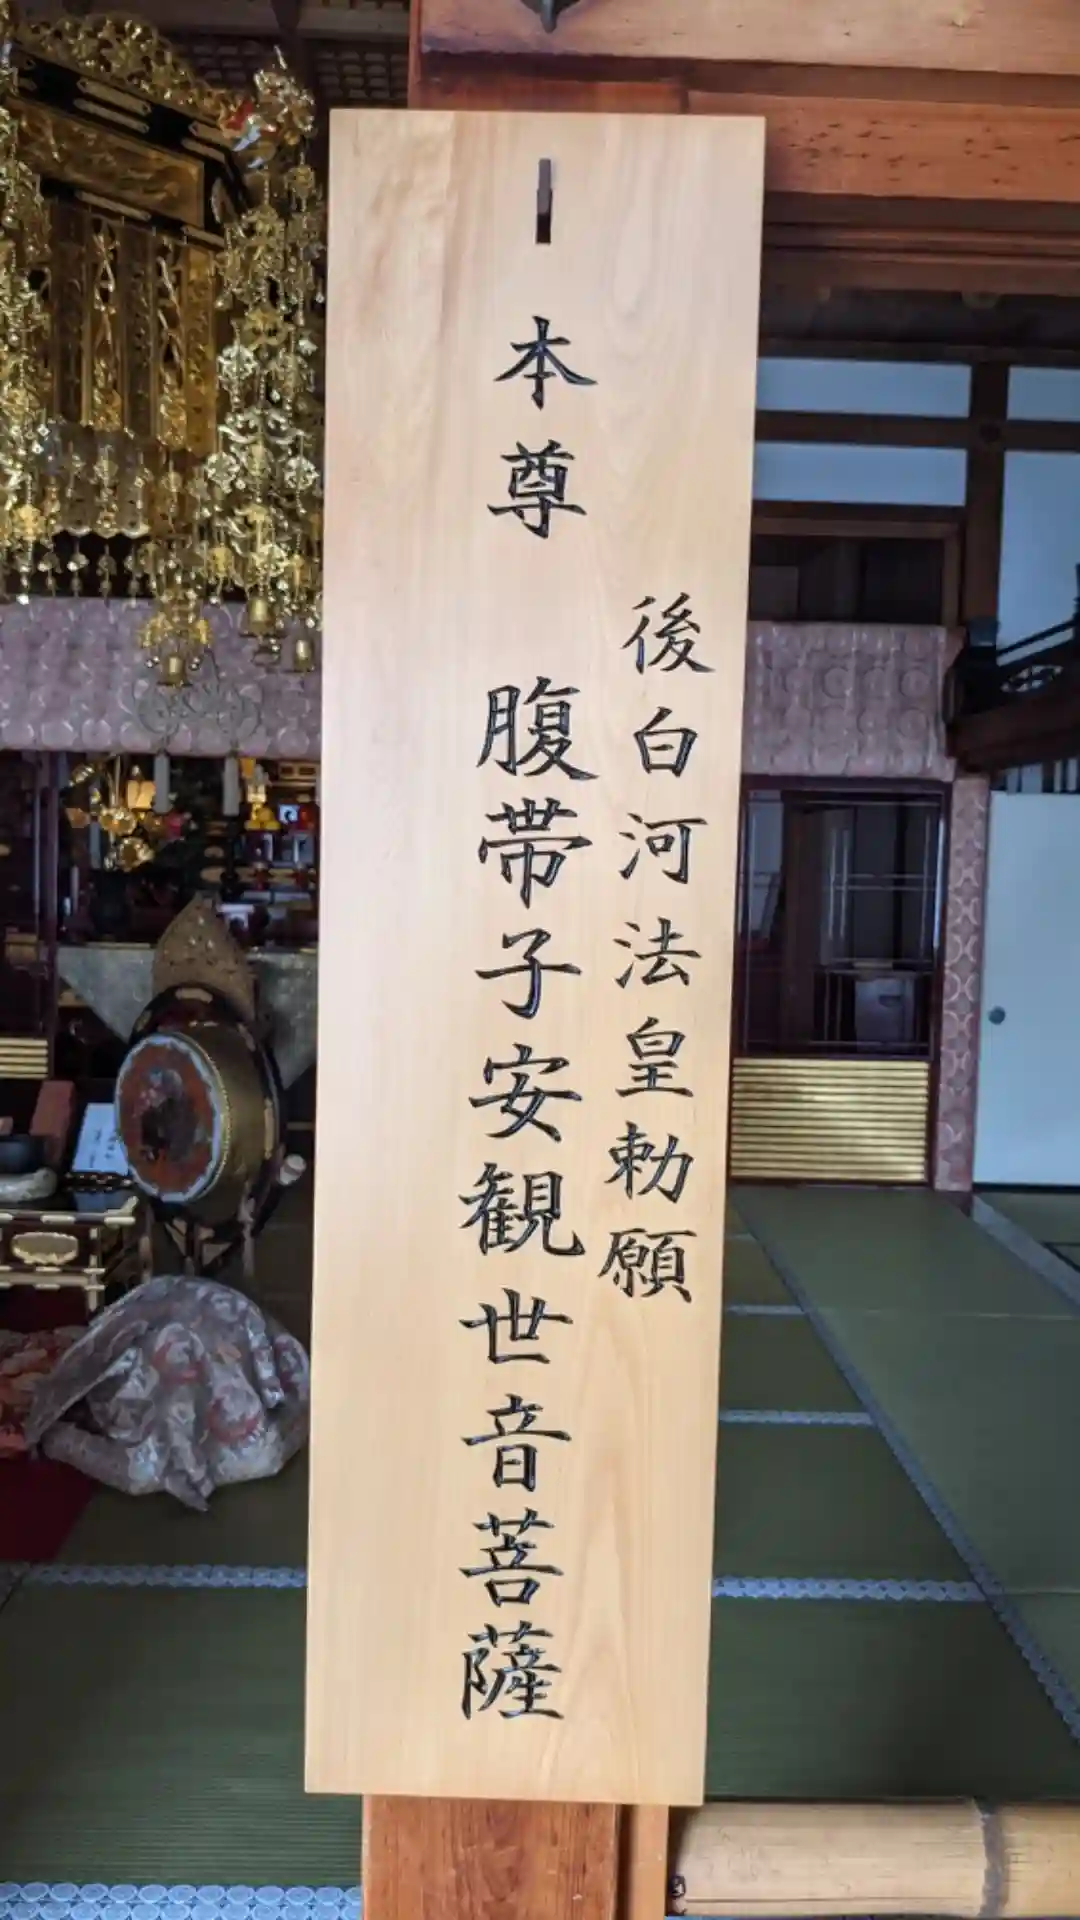 後白河法皇勅願
本尊 腹帯子安観世音菩薩